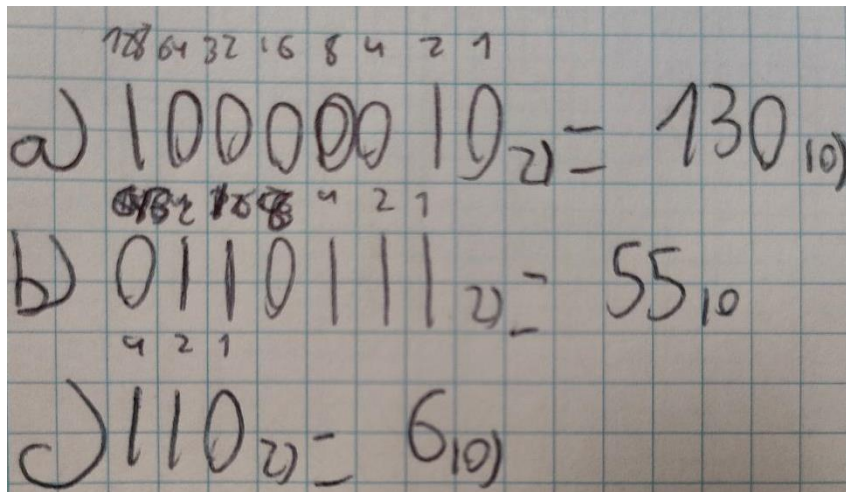 128 64 32 16 8 4 2 1
a) 10000010 2) = 130 10)
4 2 1
b) 0110111 2) = 55 10
4 2 1
c) 110 2) = 6 10)